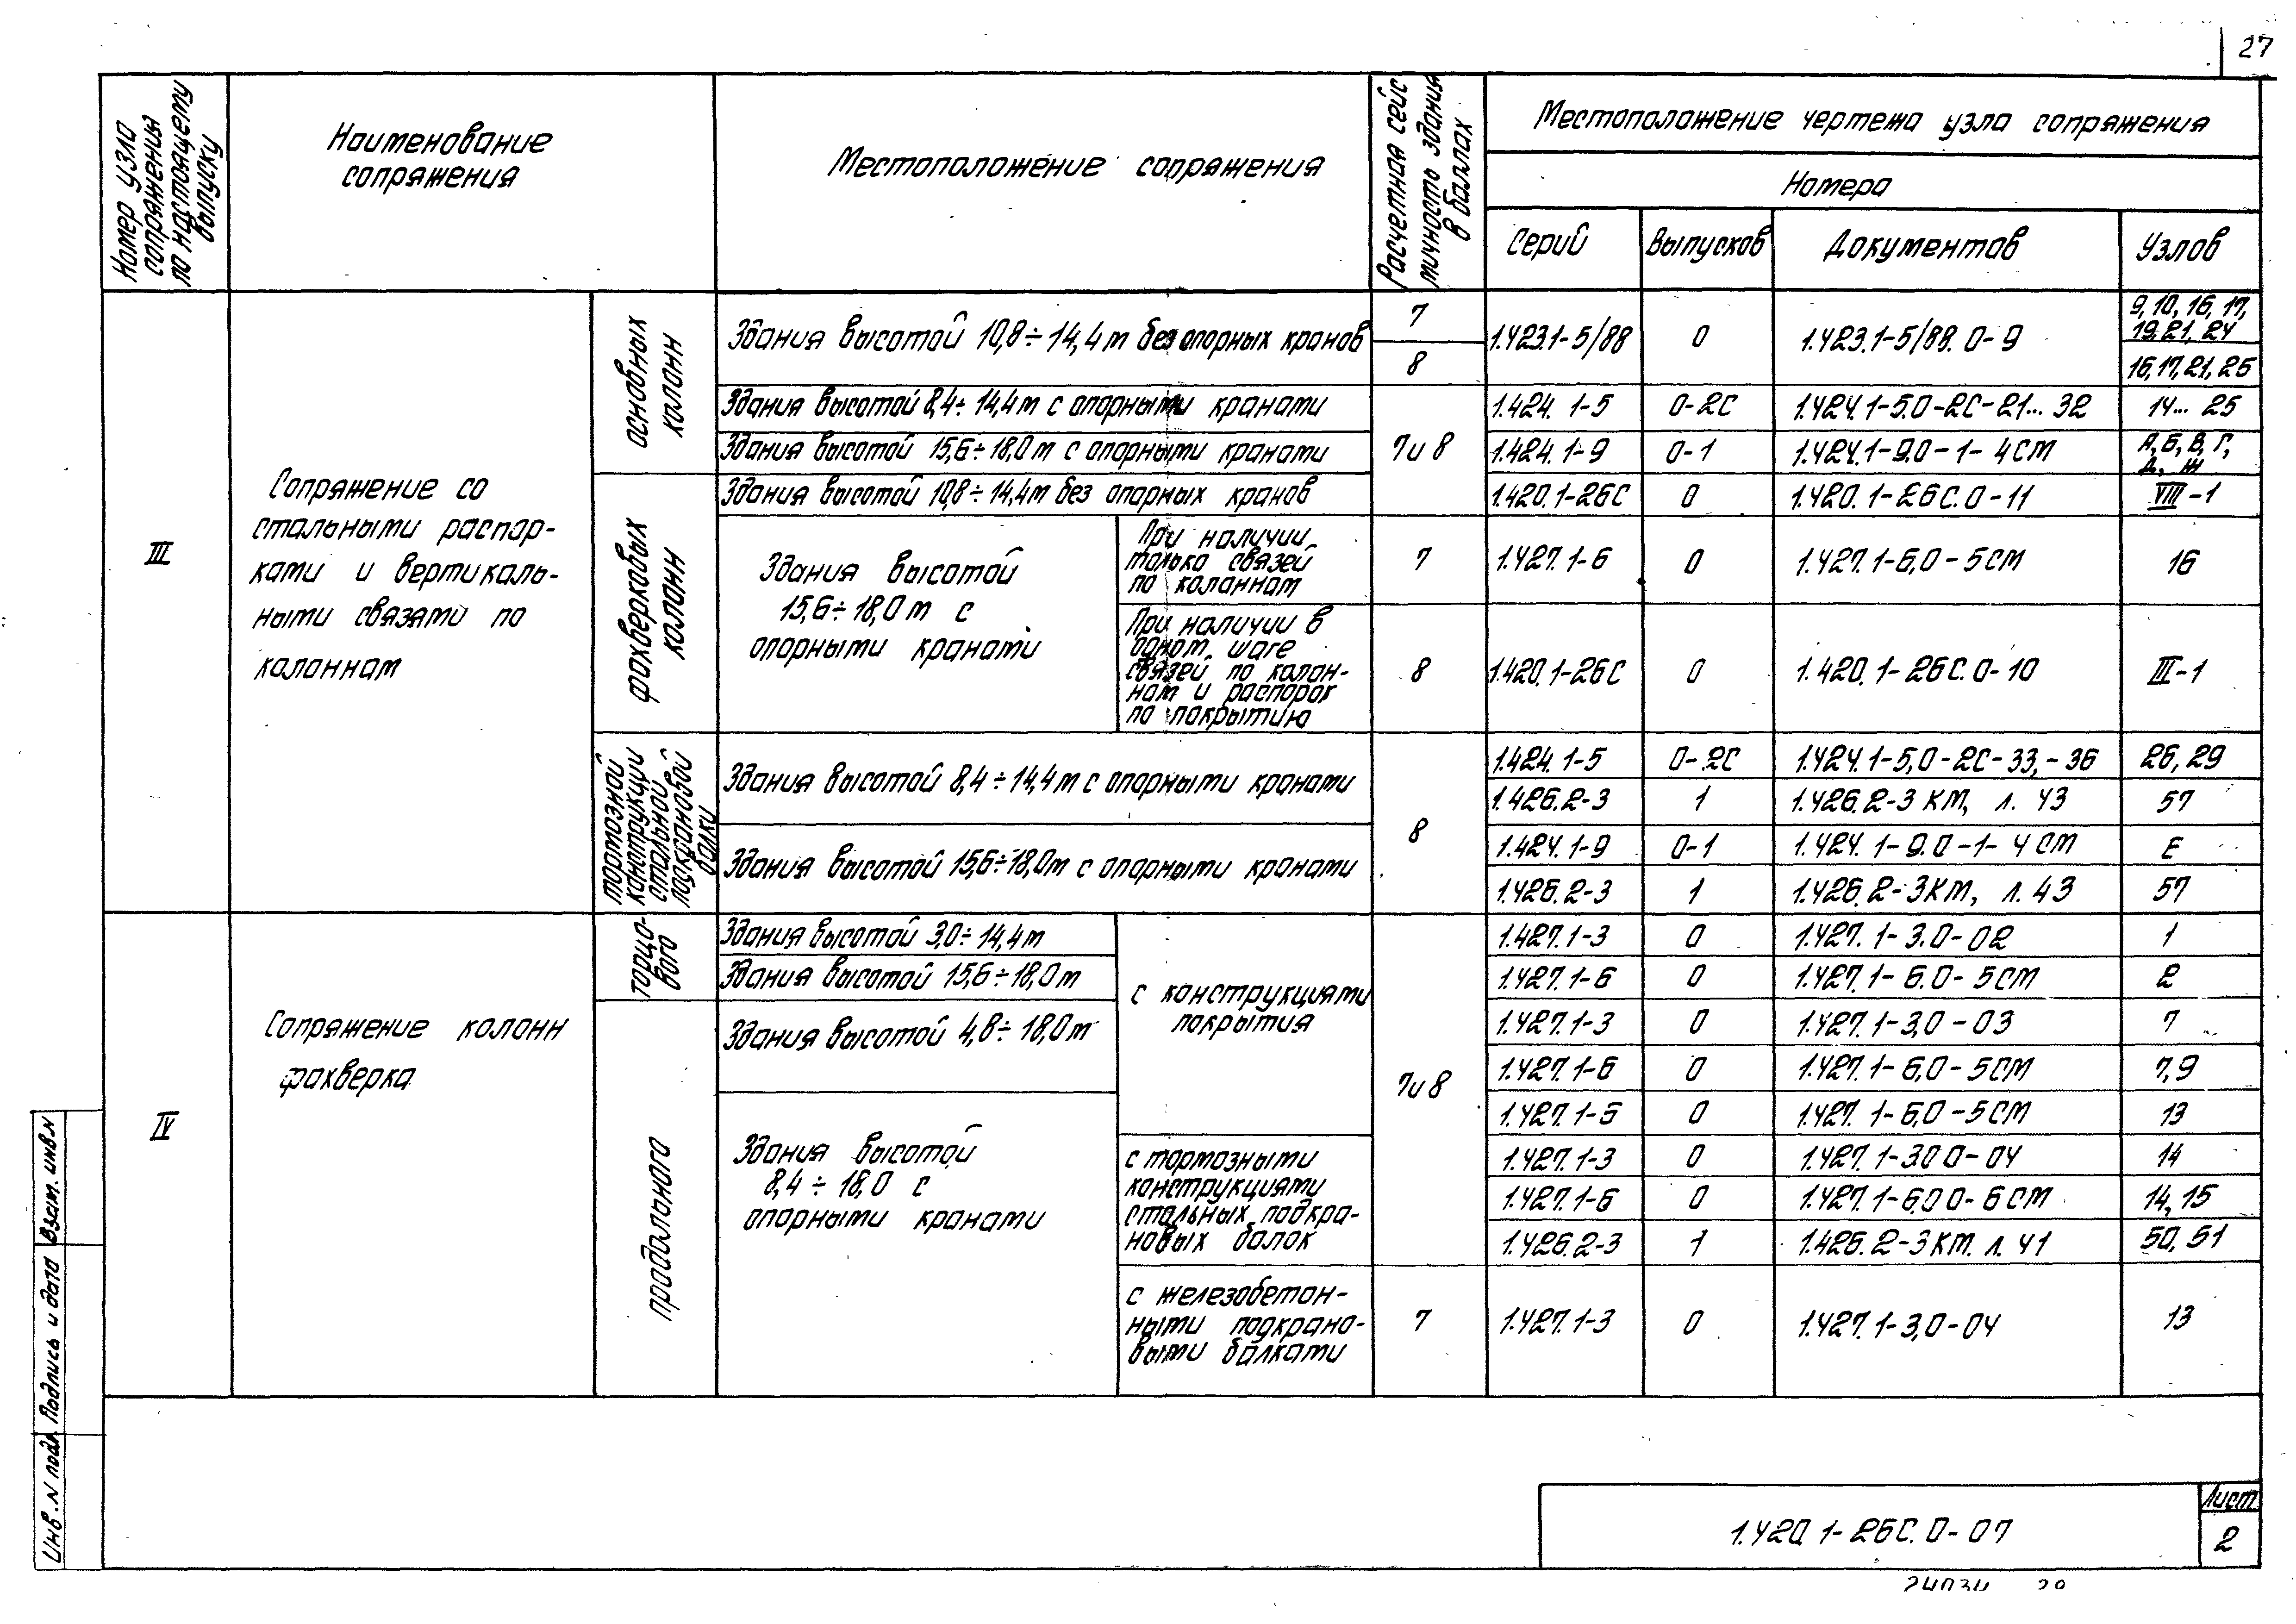 27
Номер узла
сопряжения
по настоящему
выпуску
Наименование
сопряжения
Местоположение сопряжения
Расчетная сейс
мичность здания
в баллах
Местоположение чертежа узла сопряжения
Номера
Серий
Выпусков
Документов
Узлов
III
Сопряжение со
стальными распор-
ками и вертикаль-
ными связями по
колоннам
основных
колонн
Здания высотой 10,8÷14,4м без опорных кранов
7
8
1.423.1-5/88
0
1.423.1-5/88.0-9
9,10,16,17,
19,21,24
16,17,21,25
Здания высотой 8,4÷14,4м с опорными кранами
7и8
1.424.1-5
0-2С
1.424.1-5.0-2С-21...32
14...25
Здания высотой 15,6÷18,0м с опорными кранами
1.424.1-9
0-1
1.424.1-9.0-1-4СМ
А,Б,В,Г,
Д, Ж
фахверковых
колонн
Здания высотой 10,8÷14,4м без опорных кранов
1.420.1-26С
0
1.420.1-26С.0-11
VIII-1
Здания высотой
15,6÷18,0м с
опорными кранами
При наличии
только связей
по колоннам
7
1.427.1-6
0
1.427.1-6,0-5СМ
16
При наличии в
одном шаге
связей по колон-
нам и распорок
по покрытию
8
1.420.1-26С
0
1.420.1-26С.0-10
III-1
тормозной
конструкции
стальной
подкрановой
балки
Здания высотой 8,4÷14,4м с опорными кранами
8
1.424.1-5
0-2С
1.424.1-5,0-2С-33,-36
26,29
1.426.2-3
1
1.426.2-3КМ, л.43
57
Здания высотой 15,6÷18,0м с опорными кранами
1.424.1-9
0-1
1.424.1-9.0-1-4СМ
Е
1.426.2-3
1
1.426.2-3КМ, л.43
57
IV
Сопряжение колонн
фахверка
торцо-
вого
Здания высотой 3,0÷14,4м
с конструкциями
покрытия
7и8
1.427.1-3
0
1.427.1-3.0-02
1
Здания высотой 15,6÷18,0м
1.427.1-6
0
1.427.1-6.0-5СМ
2
продольного
Здания высотой 4,8÷18,0м
1.427.1-3
0
1.427.1-3,0-03
7
1.427.1-6
0
1.427.1-6,0-5СМ
7,9
Здания высотой
8,4÷18,0 с
опорными кранами
1.427.1-6
0
1.427.1-6,0-5СМ
13
с тормозными
конструкциями
стальных подкра-
новых балок
1.427.1-3
0
1.427.1-3.00-04
14
1.427.1-6
0
1.427.1-6.00-6СМ
14,15
1.426.2-3
1
1.426.2-3КМ.л.41
50,51
с железобетон-
ными подкрано-
выми балками
7
1.427.1-3
0
1.427.1-3,0-04
13
Инв.N подл. Подпись и дата Взам. инв.N
1.420.1-26С.0-07
Лист
2